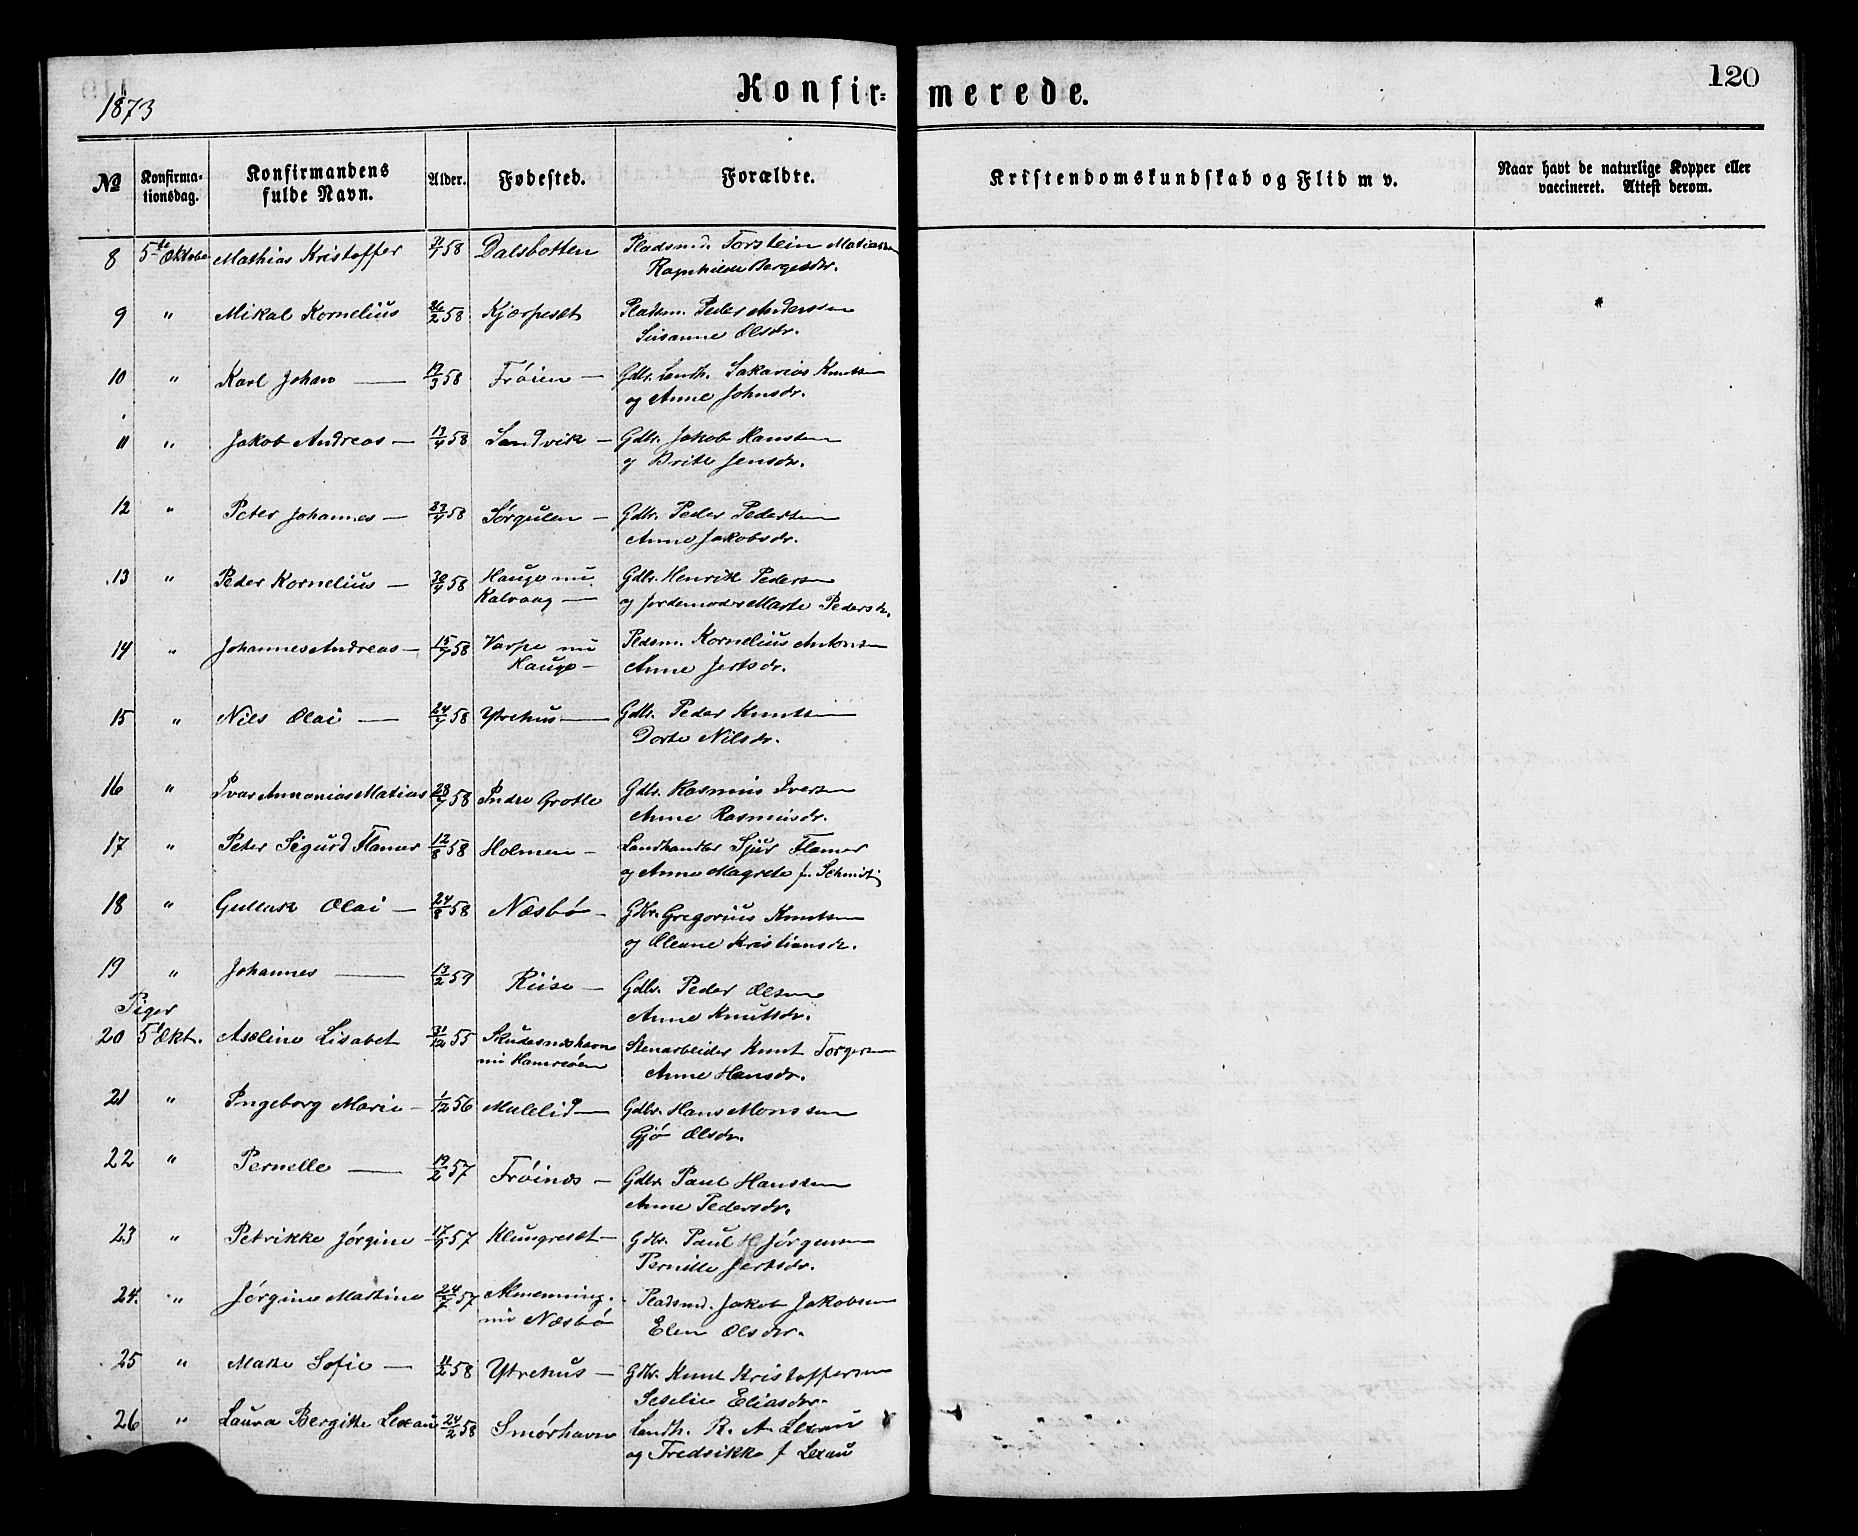 1873
Konfir-merede.
120
No
Konfirma-tionsdag.
Konfirmandens fulde Navn.
Alder.
Fødested.
Forældre.
Kristendomskundskab og Flid m v.
Naar havt de naturlige Kopper eller vaccineret. Attest derom.
8 5te Oktober Mathias Kristoffer 58 Dalsbotten Pladsmd. Torstein Matiassen
Ragnhilde Børgesdr.
9 " Mikal Kornelius 26/2 58 Kjærpeset Pladsm. Peder Anderssen
Susanne Olsdr.
10 " Karl Johan — 19/3 58 Frøien — Gdbr. Landh. Sakarias Knutsen
og Anne Johnsdr.
11 " Jakob Andreas — 13/4 58 Sandvik — Gdbr. Jakob Hanssen
og Brite Jensdr.
12 " Peter Johannes — 58 Sørgulen — Gdbr. Peder Pedersen
Anne Jakobsdr.
13 " Peder Kornelius — 30/4 58 Hauge nu Gdbr. Henrik Pedersen
Kalvaag — og Jordemoder Marte Pedersdr.
14 " Johannes Andreas — 15/7 58 Varpe nu Pladsm. Kornelius Antonsen
Hauge — Anne Jertsdr.
15 " Nils Olai — 24/7 58 Ytrehus — Gdbr. Peder Knutsen
Dorte Nilsdr.
16 " Ivar Annanias Matias 28/7 58 Indre Grotle Gdbr. Rasmus Iversen
Anne Rasmusdr.
17 " Peter Sigurd Flamer 12/8 58 Holmen — Landhandler Sjur Flamer
og Anne Magrete f. Schmidt
18 " Gullak Olai — 24/8 58 Næsbø — Gdbr. Gregorius Knutsen
og Oleane Kristiansdr.
19 " Johannes — 13/2 59 Riise — Gdbr. Peder Olsen
Anne Knutsdr.
Piger
20 5t Okt. Aseline Lisabet 31/12 55 Skudesneshavn Stenarbeider Knut Torgersen
nu Hamrøen Anne Hansdr.
21 " Ingeborg Marie — 1/12 56 Mulelid — Gdbr. Hans Monssen
Gjø Olsdr.
22 " Pernelle — 19/2 57 Frøinæs — Gdbr. Paul Hanssen
Anne Pedersdr.
23 " Petrikke Jørgine — 57 Klungreset — Gdbr. Paul H. Jørgensen
Pernille Jertsdr.
24. " Jørgine Martine 24/7 57 Almenning. Pladsmd. Jakob Jakobsen
nu Næsbø Elen Olsdr.
25 " Marte Sofie — 11/2 58 Ytrehus — Gdbr. Knut Kristoffersen
Seselie Eliasdr.
26 " Laura Bergitte Lexau 24/2 58 Smørhavn Landh. R. A. Lexau
og Fredrikke f Lexau